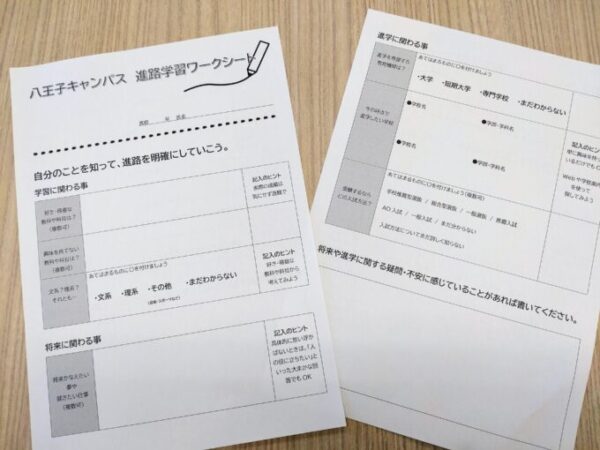 八王子キャンパス 進路学習ワークシート
高校 年 氏名
自分のことを知って、進路を明確にしていこう。
学習に関わる事
好き・得意な
教科や科目は？
（複数可）
記入のヒント
実際の成績は
気にせず直観で
興味を持てない
教科や科目は？
（複数可）
文系？理系？
それとも…
あてはまるものに○を付けましょう
・文系 ・理系 ・その他 ・まだわからない
記入のヒント
好き・得意な
教科や科目から
考えてみよう
将来に関わる事
将来かなえたい
夢や
就きたい仕事
（複数可）
記入のヒント
具体的に思い浮か
ばないときは、「人
の役に立ちたい」と
いった大まかな回
答でもOK
進学に関わる事
進学を希望する
教育機関は？
あてはまるものに○を付けましょう
・大学 ・短期大学 ・専門学校 ・まだわからない
今の時点で
進学したい学校
●学校名
●学部・学科名
●学校名
●学部・学科名
記入のヒント
受験するなら
どの入試方法？
あてはまるものに○を付けましょう（複数可）
学校推薦型選抜 / 総合型選抜 / 一般選抜 / 推薦入試
AO入試 / 一般入試 / まだ分からない
入試方法についてまだ詳しく知らない
将来や進学に関する疑問・不安に感じていることがあれば書いてください。